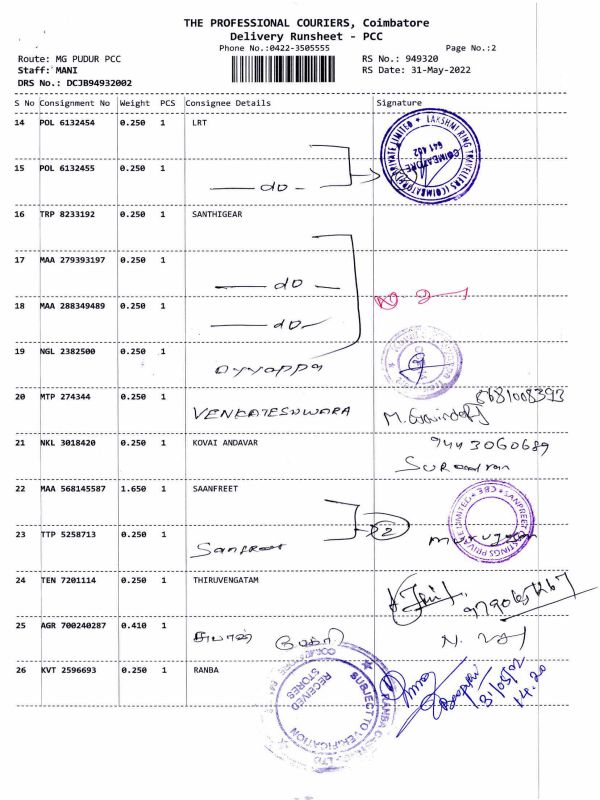 THE PROFESSIONAL COURIERS, Coimbatore
Delivery Runsheet - PCC
Phone No.:0422-3505555 Page No.:2
Route: MG PUDUR PCC RS No.: 949320
Staff: MANI RS Date: 31-May-2022
DRS No.: DCJB94932002
S No Consignment No Weight PCS Consignee Details Signature
14 POL 6132454 0.250 1 LRT
15 POL 6132455 0.250 1
do
16 TRP 8233192 0.250 1 SANTHIGEAR
17 MAA 279393197 0.250 1
do
18 MAA 288349489 0.250 1
do
19 NGL 2382500 0.250 1
Ayyappa
20 MTP 274344 0.250 1
VENKATESHWARA
21 NKL 3018420 0.250 1 KOVAI ANDAVAR 9443060689
22 MAA 568145587 1.650 1 SAANFREET
23 TTP 5258713 0.250 1 2
Sanfreet
24 TEN 7201114 0.250 1 THIRUVENGATAM
25 AGR 700240287 0.410 1
26 KVT 2596693 0.250 1 RANBA
RECEIVED
STORES
SUBJECT TO VERIFICATION